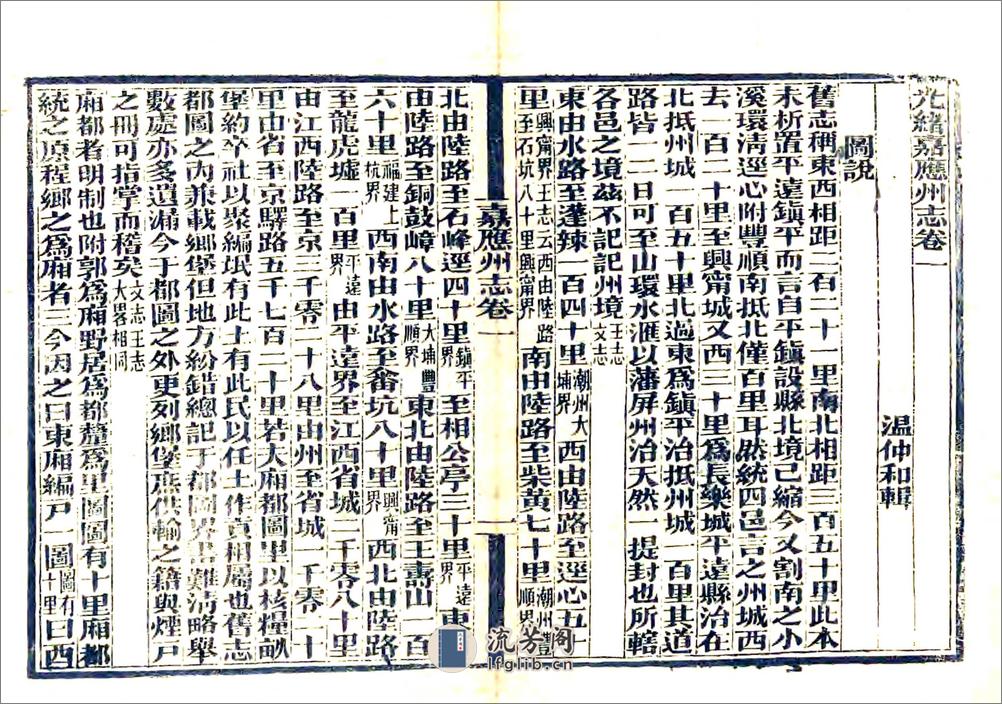 光緒嘉應州志卷一
温仲和輯
圖說
舊志稱東西相距二百二十一里南北相距三百五十里此本
未析置平遠鎮平而言自平鎮設縣北境已縮今又割南之小
溪環淸逕心附豐順南抵北僅百里耳然統四邑言之州城西
去一百二十里至興甯城又西三十里爲長樂城平遠縣治在
北抵州城一百五十里北過東爲鎮平治抵州城一百里其道
路皆一二日可至山環水滙以藩屏州治天然一提封也所轄
各邑之境茲不記記州境王志文志
東由水路至蓬辣一百四十里潮州大埔界西由陸路至逕心五十
里興甯界王志云西由陸路至石坑八十里興甯界南由陸路至柴黃七十里潮州豐順界
北由陸路至石峰逕四十里鎮平界至相公亭二十里平遠界東
由陸路至銅鼓嶂八十里大埔豐順界東北由陸路至王壽山一百
六十里福建上杭界西南由水路至畬坑八十里興甯界西北由陸路
至龍虎墟一百里平遠界由平遠界至江西省城二千零八十里
由江西陸路至京三千零二十八里由州至省城一千零二十
里由省至京驛路五千七百二十里若夫廂都圖里以核糧畝
堡約卒社以聚編氓有此土有此民以任土作貢相屬也舊志
都圖之內兼載鄉堡但地方紛錯總記于都圖界畫難淸略舉
數處亦多遺漏今于都圖之外更列鄉堡庶供輸之籍與煙戸
之冊可指掌而稽矣文志王志大畧相同
廂都者明制也附郭爲廂野居爲都釐爲里圖圖有十里廂都
統之原程鄉之爲廂者三今因之曰東廂編戸一圖圖有十里曰西
嘉應州志卷一
一
流芳阁
lfglib.cn